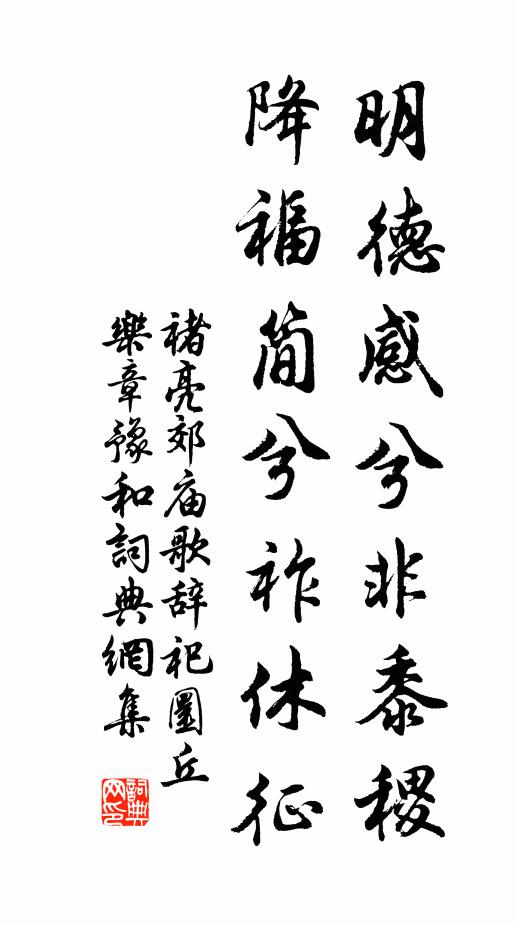 明德感兮非黍稷
降福简兮祚休征
褚亮郊庙歌辞祀圜丘
樂章豫和詞典網集
詞典網印